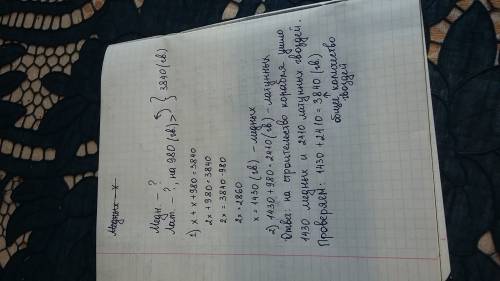 Медных - х -
Медн. - ?
Лат. - ?, на 980 (гв) > } 3840 (гв)
1) х + х + 980 = 3840
2х + 980 = 3840
2х = 3840 - 980
2х = 2860
х = 1430 (гв) - медных
2) 1430 + 980 = 2410 (гв) - латунных
Ответ: на строительство корабля ушло
1430 медных и 2410 латунных гвоздей.
Проверяем: 1430 + 2410 = 3840 (гв)
↑
общее количество
гвоздей